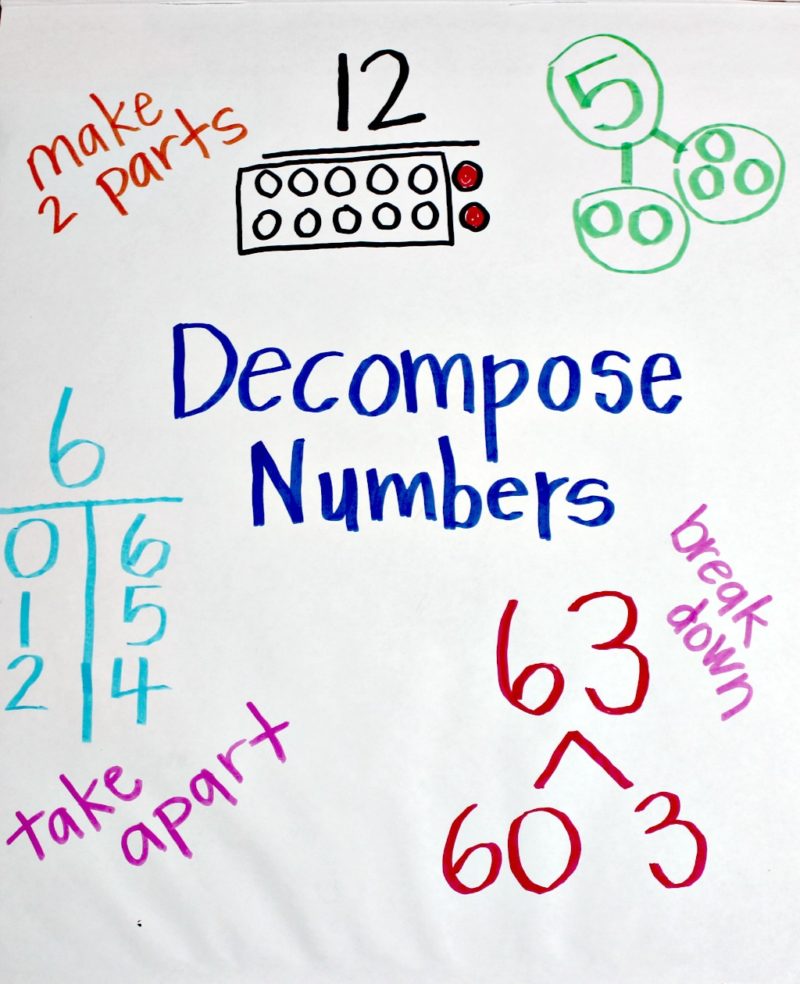 make
2 parts
12
5
Decompose
Numbers
6
0 6
1 5
2 4
break
down
63
60 3
take
apart